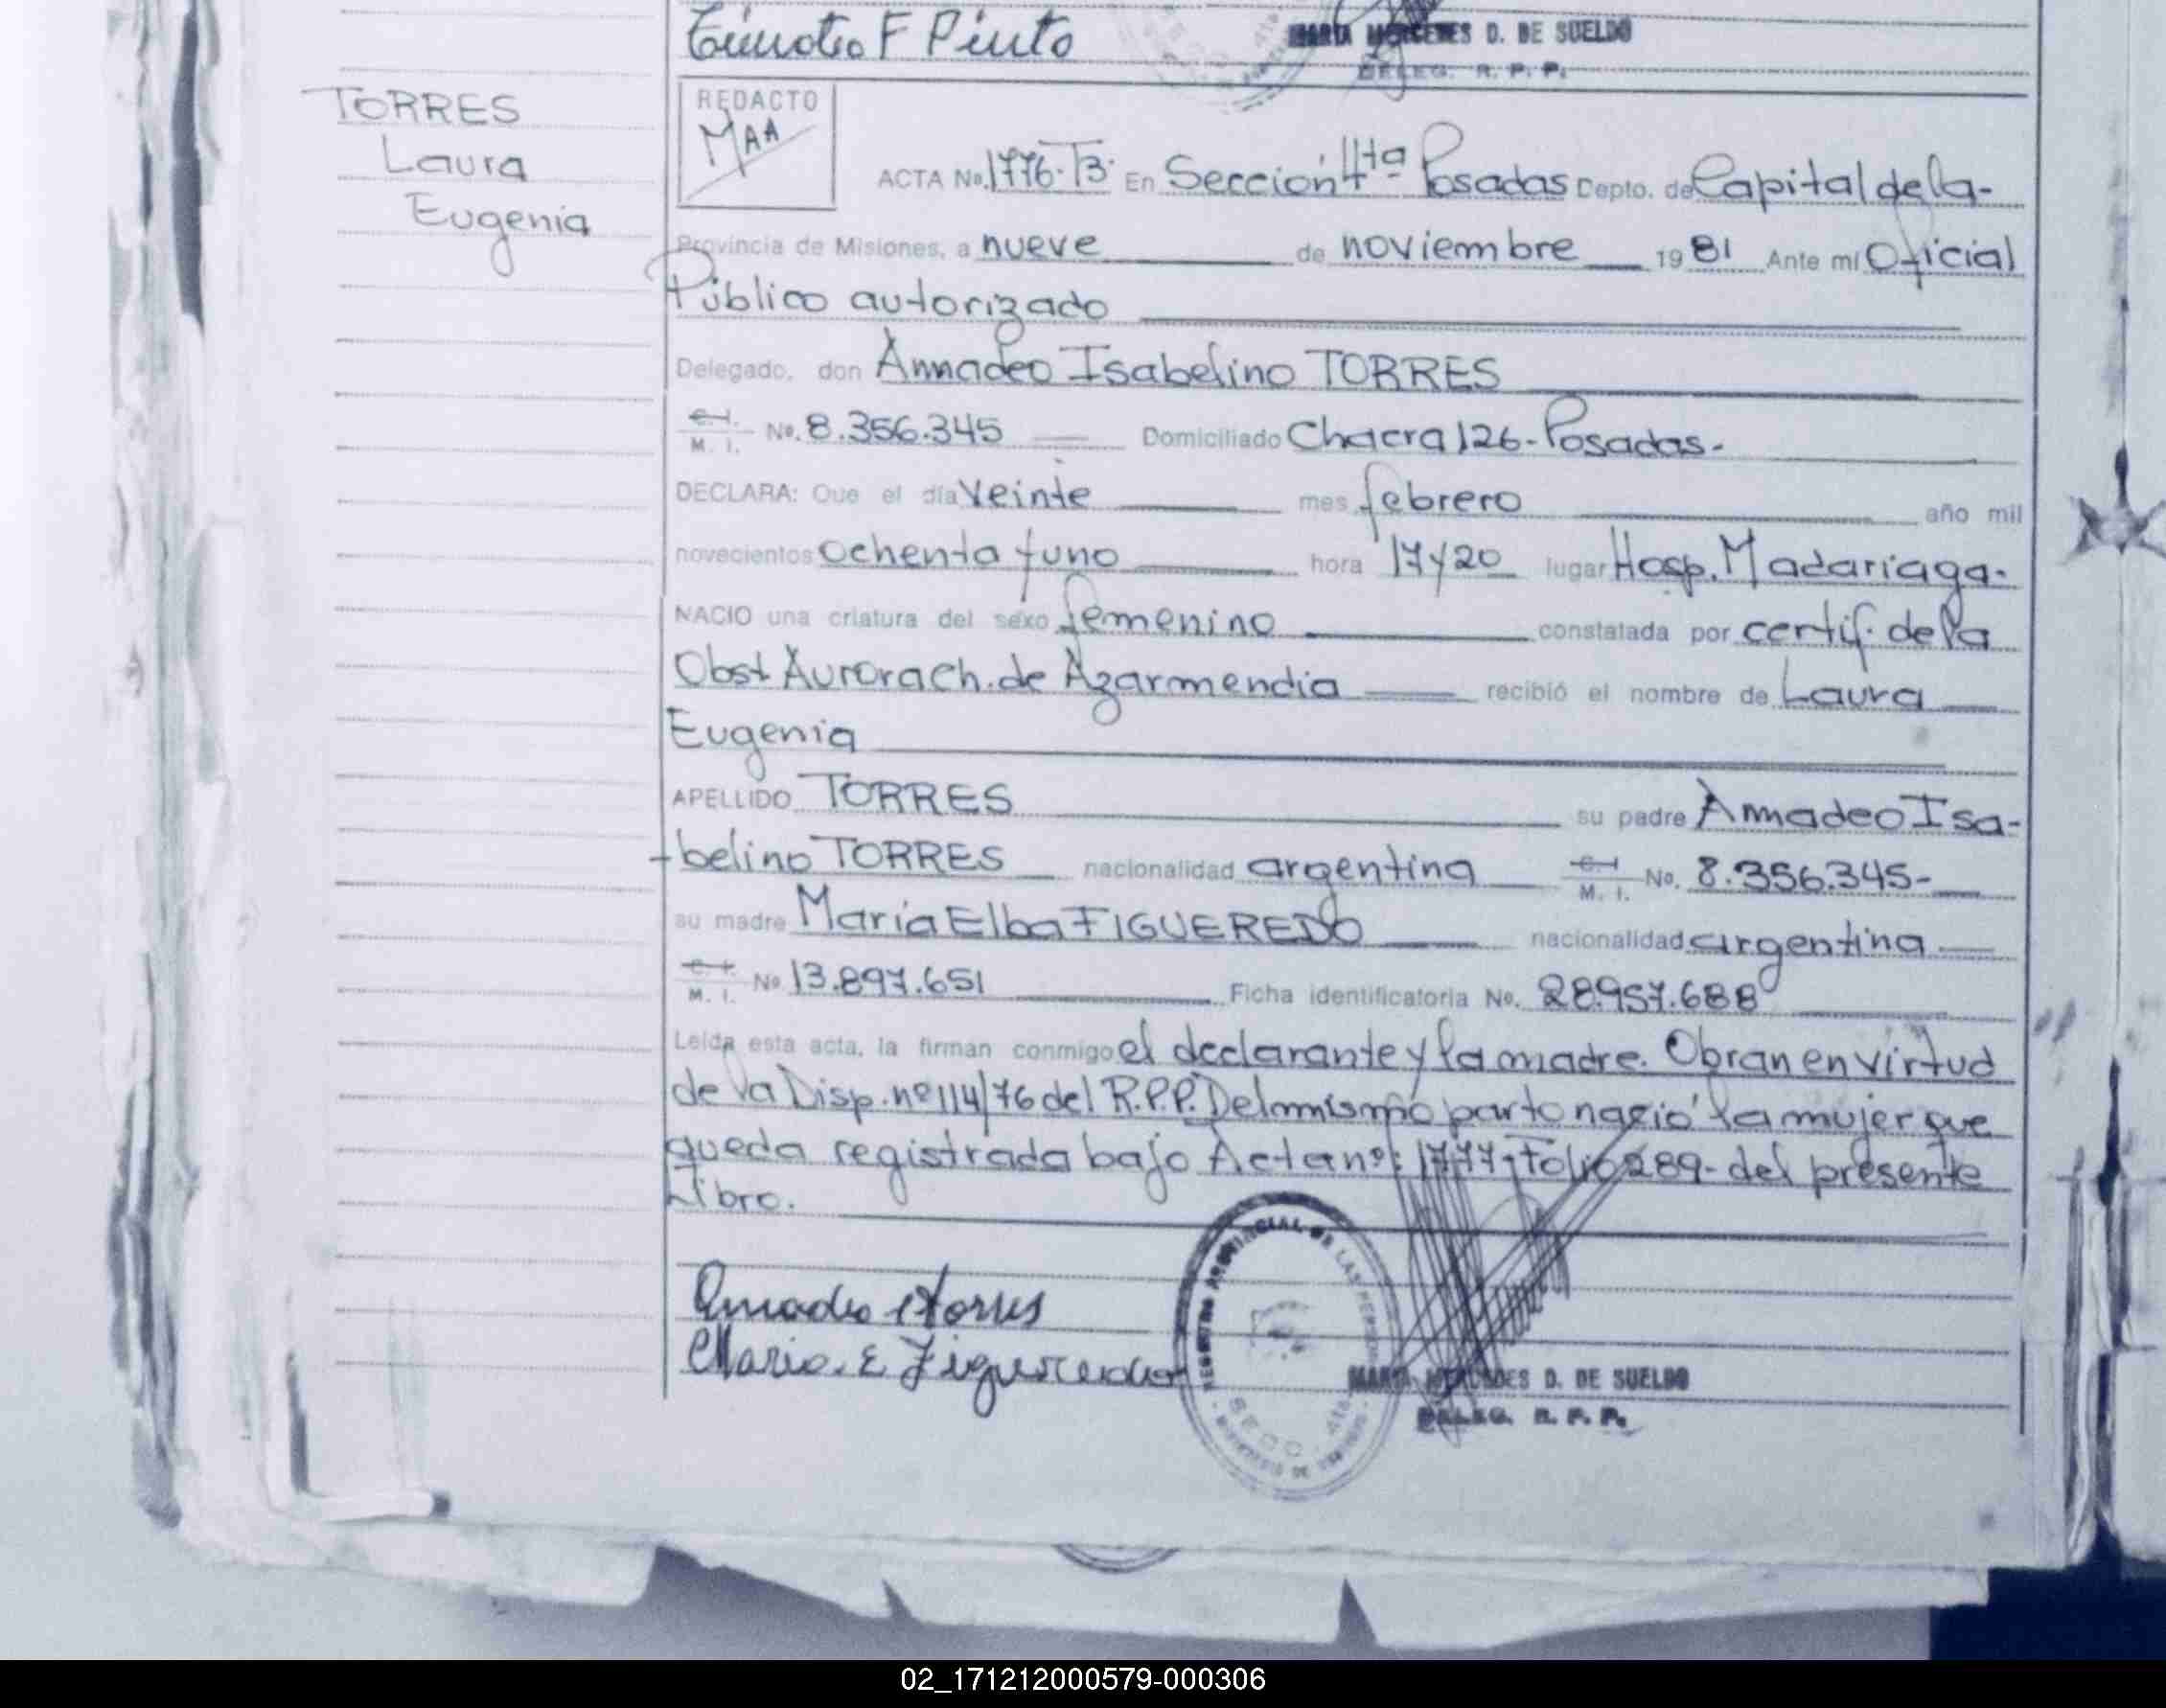 Timoteo F Pinto
MARIA MERCEDES D. DE SUELDO
DELEG. R. P. P.
TORRES
Laura
Eugenia
REDACTO
MAA
ACTA No. 1776-T3- En Sección 4ta Posadas Depto. de Capital de la-
Provincia de Misiones, a nueve de noviembre 1981 Ante mí Oficial
Público autorizado
Delegado, don Amadeo Isabelino TORRES
C. I. M. I. No. 8.356.345 Domiciliado Chacra 126-Posadas-
DECLARA: Que el día veinte mes febrero año mil
novecientos ochenta y uno hora 17y20 lugar Hosp. Madariaga-
NACIO una criatura del sexo femenino constatada por certif. de la
Obst Aurora Ch. de Azarmendia recibió el nombre de Laura
Eugenia
APELLIDO TORRES su padre Amadeo Isa-
-belino TORRES nacionalidad argentina C. I. M. I. No. 8.356.345-
su madre María Elba FIGUEREDO nacionalidad argentina
C. I. M. I. No 13.897.651 Ficha identificatoria No. 28.957.688
Leída esta acta, la firman conmigo el declarante y la madre. Obran en virtud
de la Disp. nº 114/76 del R.P.P. Del mismo parto nació la mujer que
queda registrada bajo Acta nº: 1777-Folio 289- del presente
Libro.
Amadeo I Torres
Maria. E Figueredo
REGISTRO PROVINCIAL DE LAS PERSONAS
SECC. 4ta
MARIA MERCEDES D. DE SUELDO
DELEG. R. P. P.
02_171212000579-000306